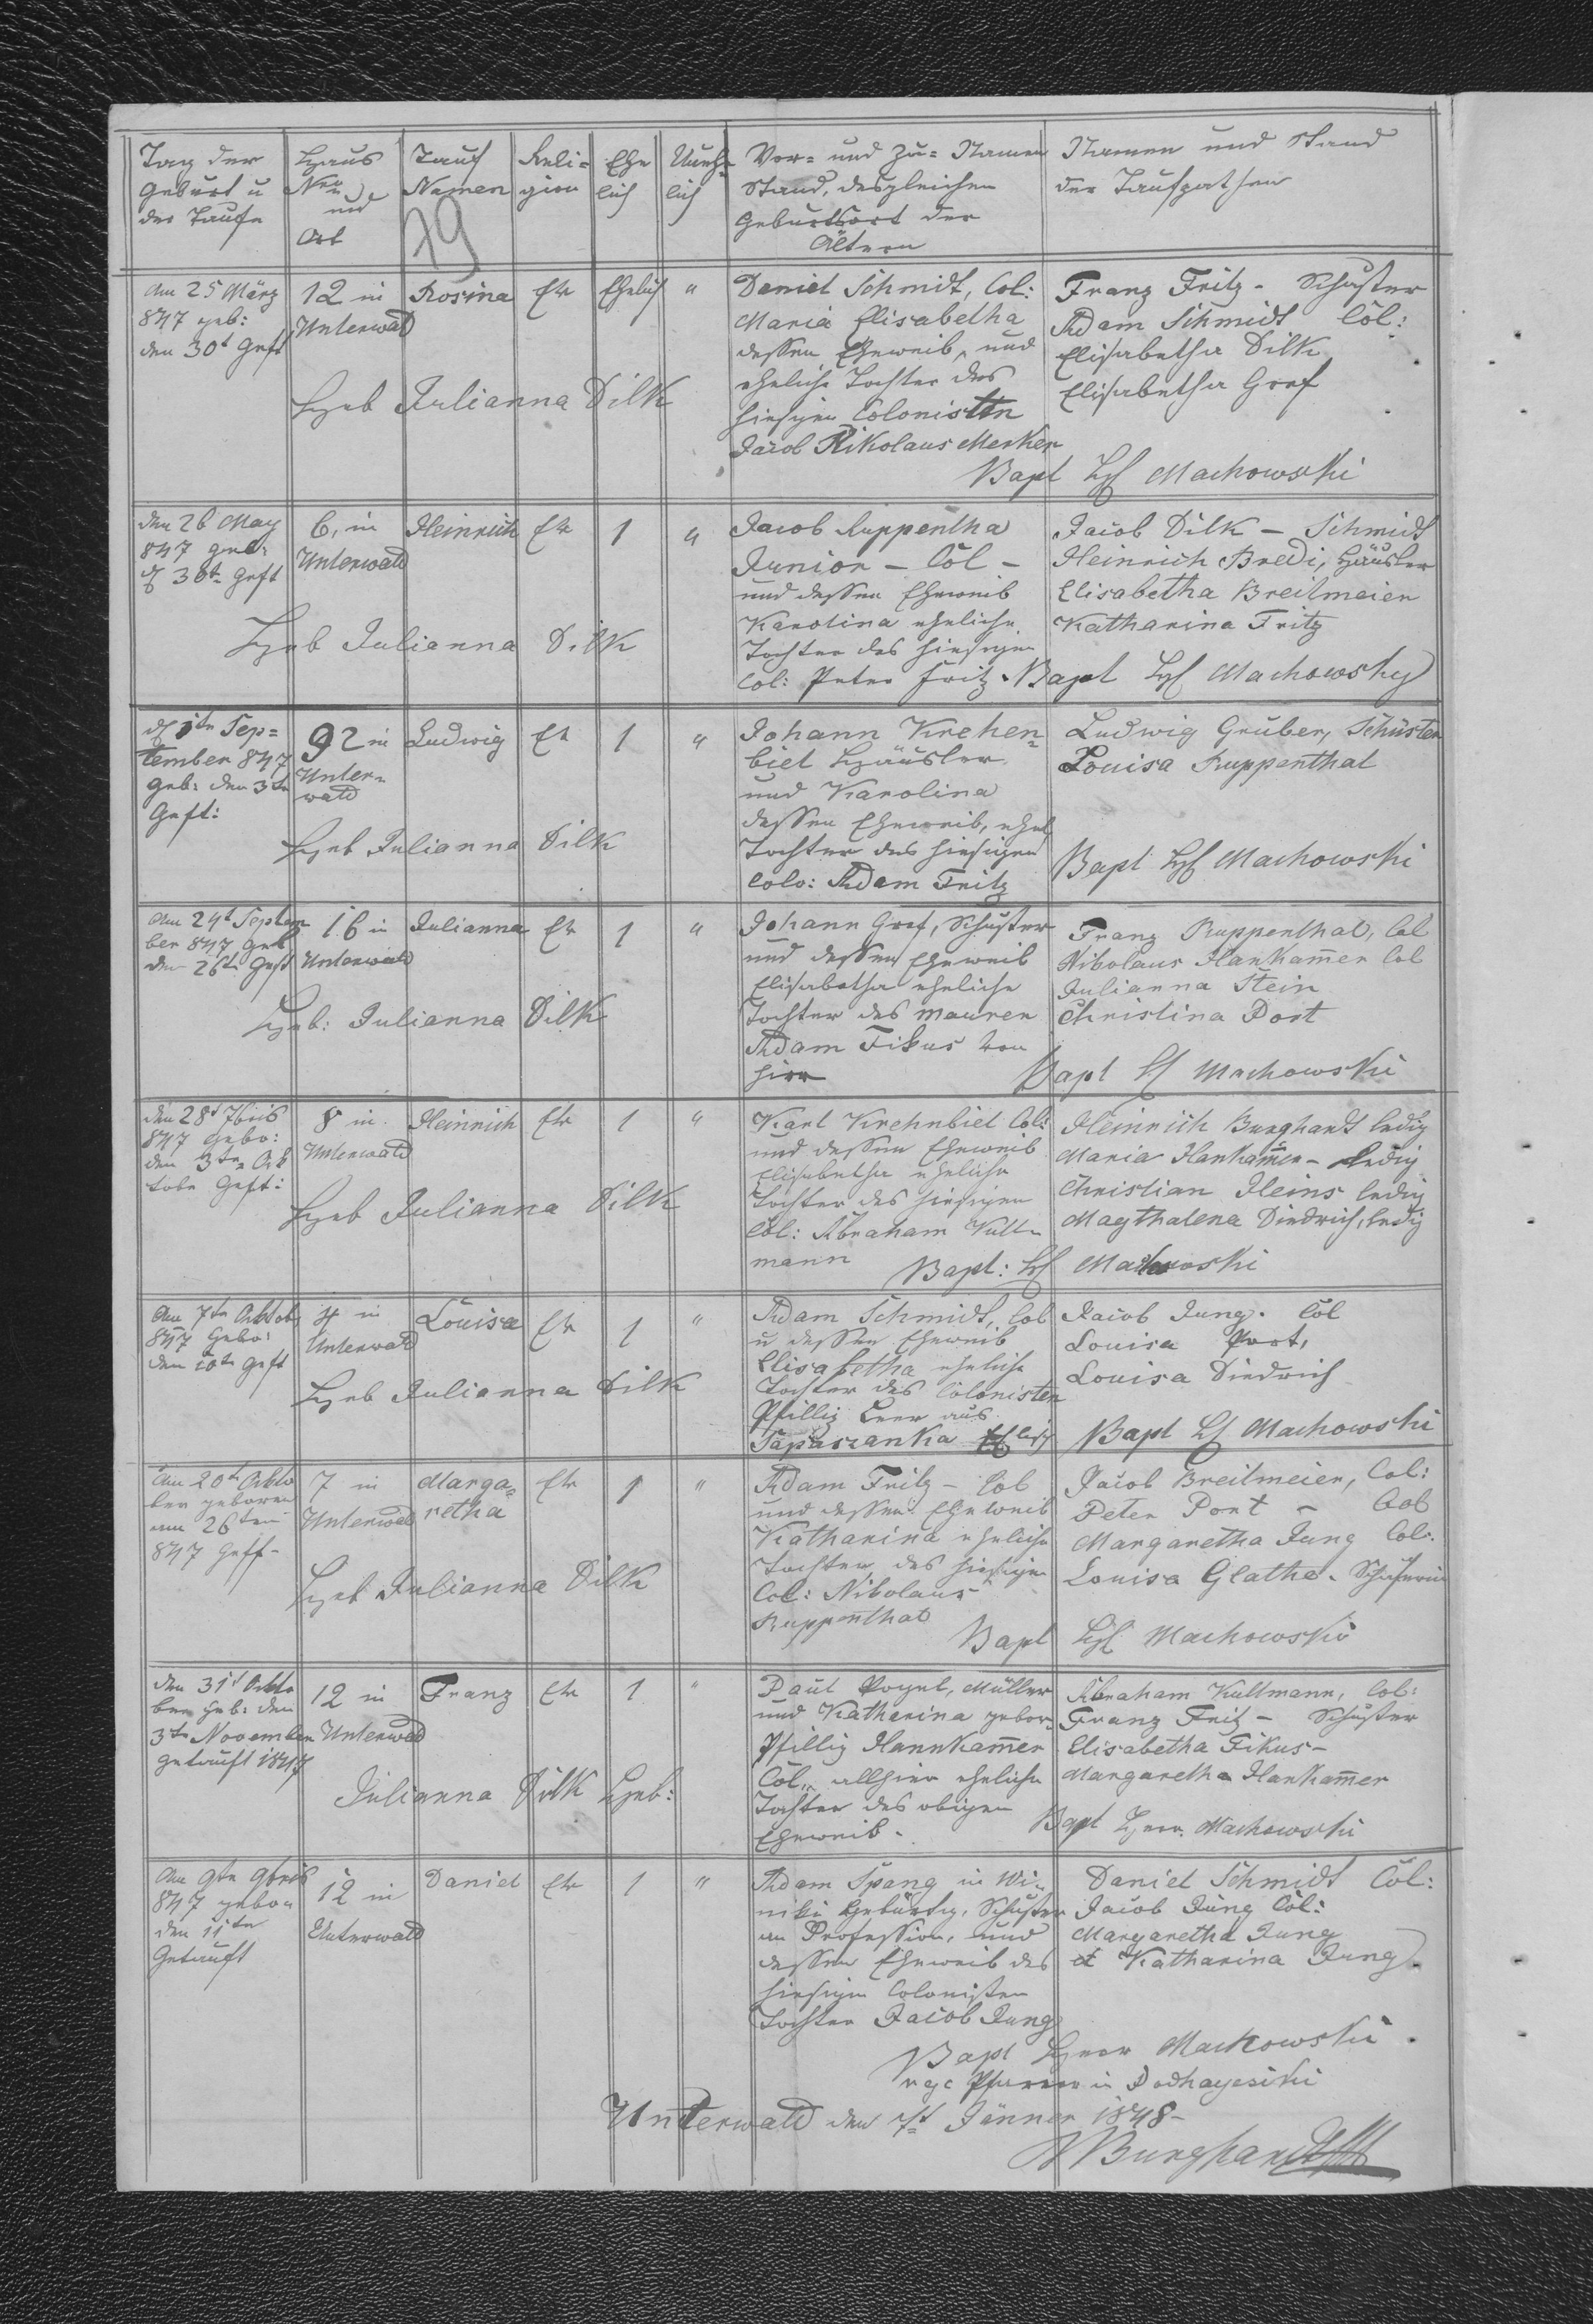 Tag der
Geburt u
der Taufe
Haus
Nro
und
Ort
Tauf
Namen
79
Reli-
gion
Ehe
lich
Uneh-
lich
Vor- und Zu-Namen
Stand, desgleichen
Geburtsort der
Ältern
Namen und Stand
der Taufpathen
Am 25 März
847 geb:
den 30t Gest
12 in
Unterwald
Rosina
Ev
Ehelich
"
Daniel Schmidt, Col:
Maria Elisabetha
dessen Eheweib, und
eheliche Tochter des
hiesigen Colonisten
Jacob Nikolaus Merker
Franz Fritz - Schuster
Adam Schmidt Col:
Elisabetha Dilk
Elisabetha Graf
Heb Julianna Dilk
Bapt H Machowski
den 26 May
847 geb:
d 30t Geft
6, in
Unterwald
Heinrich
Ev
1
"
Jacob Ruppentha
Junior - Col -
und dessen Eheweib
Karolina eheliche
Tochter des hiesigen
Col: Peter Fritz
Jacob Dilk - Schmidt
Heinrich Bredi, Häusler
Elisabetha Breitmeier
Katharina Fritz
Heb Julianna Dilk
Bapt H Machowsky
d 1te Sep=
tember 847
geb: den 3te
Geft:
92 in
Unter=
wald
Ludwig
Ev
1
"
Johann Krehen=
biel Häusler
und Karolina
dessen Eheweib, ehel
Tochter des hiesigen
Colo: Adam Fritz
Ludwig Gruber, Schuster
Louisa Ruppenthal
Heb Julianna Dilk
Bapt H Machowski
Am 24t Septem
ber 847 Geb
den 26te Geft
16 in
Unterwald
Julianna
Ev
1
"
Johann Graf, Schuster
und dessen Eheweib
Elisabetha eheliche
Tochter des Maurer
Adam Fikus von
hier
Franz Ruppenthal, Col
Nikolaus Hankam̄er Col
Julianna Stein
Christina Port
Heb: Julianna Dilk
Bapt H Machowski
den 28t 7bris
847 Gebo:
den 3te Ok
tobr Geft:
8 in
Unterwald
Heinrich
Ev
1
"
Karl Krehnbiel Col:
und dessen Eheweib
Elisabetha eheliche
Tochter des hiesigen
Col: Abraham Kull=
mann
Heinrich Burghardt ledig
Maria Hankam̄er - ledig
Christian Heins ledig
Magthalena Diedrich, ledig
Heb Julianna Dilk
Bapt: H Machowski
Am 7te Oktob
847 Gebo:
den 10te Geft
4 in
Unterwald
Louisa
Ev
1
"
Adam Schmidt, Col
u dessen Eheweib
Elisabetha eheliche
Tochter des Colonisten
Phillip aus
Sapaszanka
Jacob Jung. Col
Louisa Port,
Louisa Diedrich
Heb Julianna Dilk
Bapt H Machowski
Am 20te Okto
ber geboren
am 26ten
847 Geft-
7 in
Unterwald
Marga=
retha
Ev
1
"
Adam Fritz - Col
und dessen Eheweib
Katharina eheliche
Tochter des hiesigen
Col: Nikolaus
Ruppenthal
Jacob Breitmeier, Col:
Peter Port - Col
Margaretha Jung Col:
Louisa Glathe. Schusterin
Heb Julianna Dilk
Bapt H Machowski
den 31t Okto
ber geb: den
3te November
getauft 1847
12 in
Unterwald
Franz
Ev
1
"
Paul Vogel, Müller
und Katharina gebor=
Phillip Hannkam̄er
Col. allhier eheliche
Tochter des obigen
Eheweib.
Abraham Kullmann, Col:
Franz Fritz - Schuster
Elisabetha Fikus -
Margaretha Hankam̄er
Julianna Dilk Heb:
Bapt Herr. Machowski
Am 9te 9bris
847 gebo=
den 11te
Getauft
12 in
Unterwald
Daniel
Ev
1
"
Adam Spang in Wi=
niki Gebürtig, Schuster
an Profession, und
dessen Eheweib des
hiesigen Colonisten
Tochter Jacob Jung
Daniel Schmidt Col:
Jacob Jung Col:
Margaretha Jung
et Katharina Jung
Bapt Herr Machowski
Pfarrer in Podhayczuki
Unterwald den Jänner 1848-
Burghardt